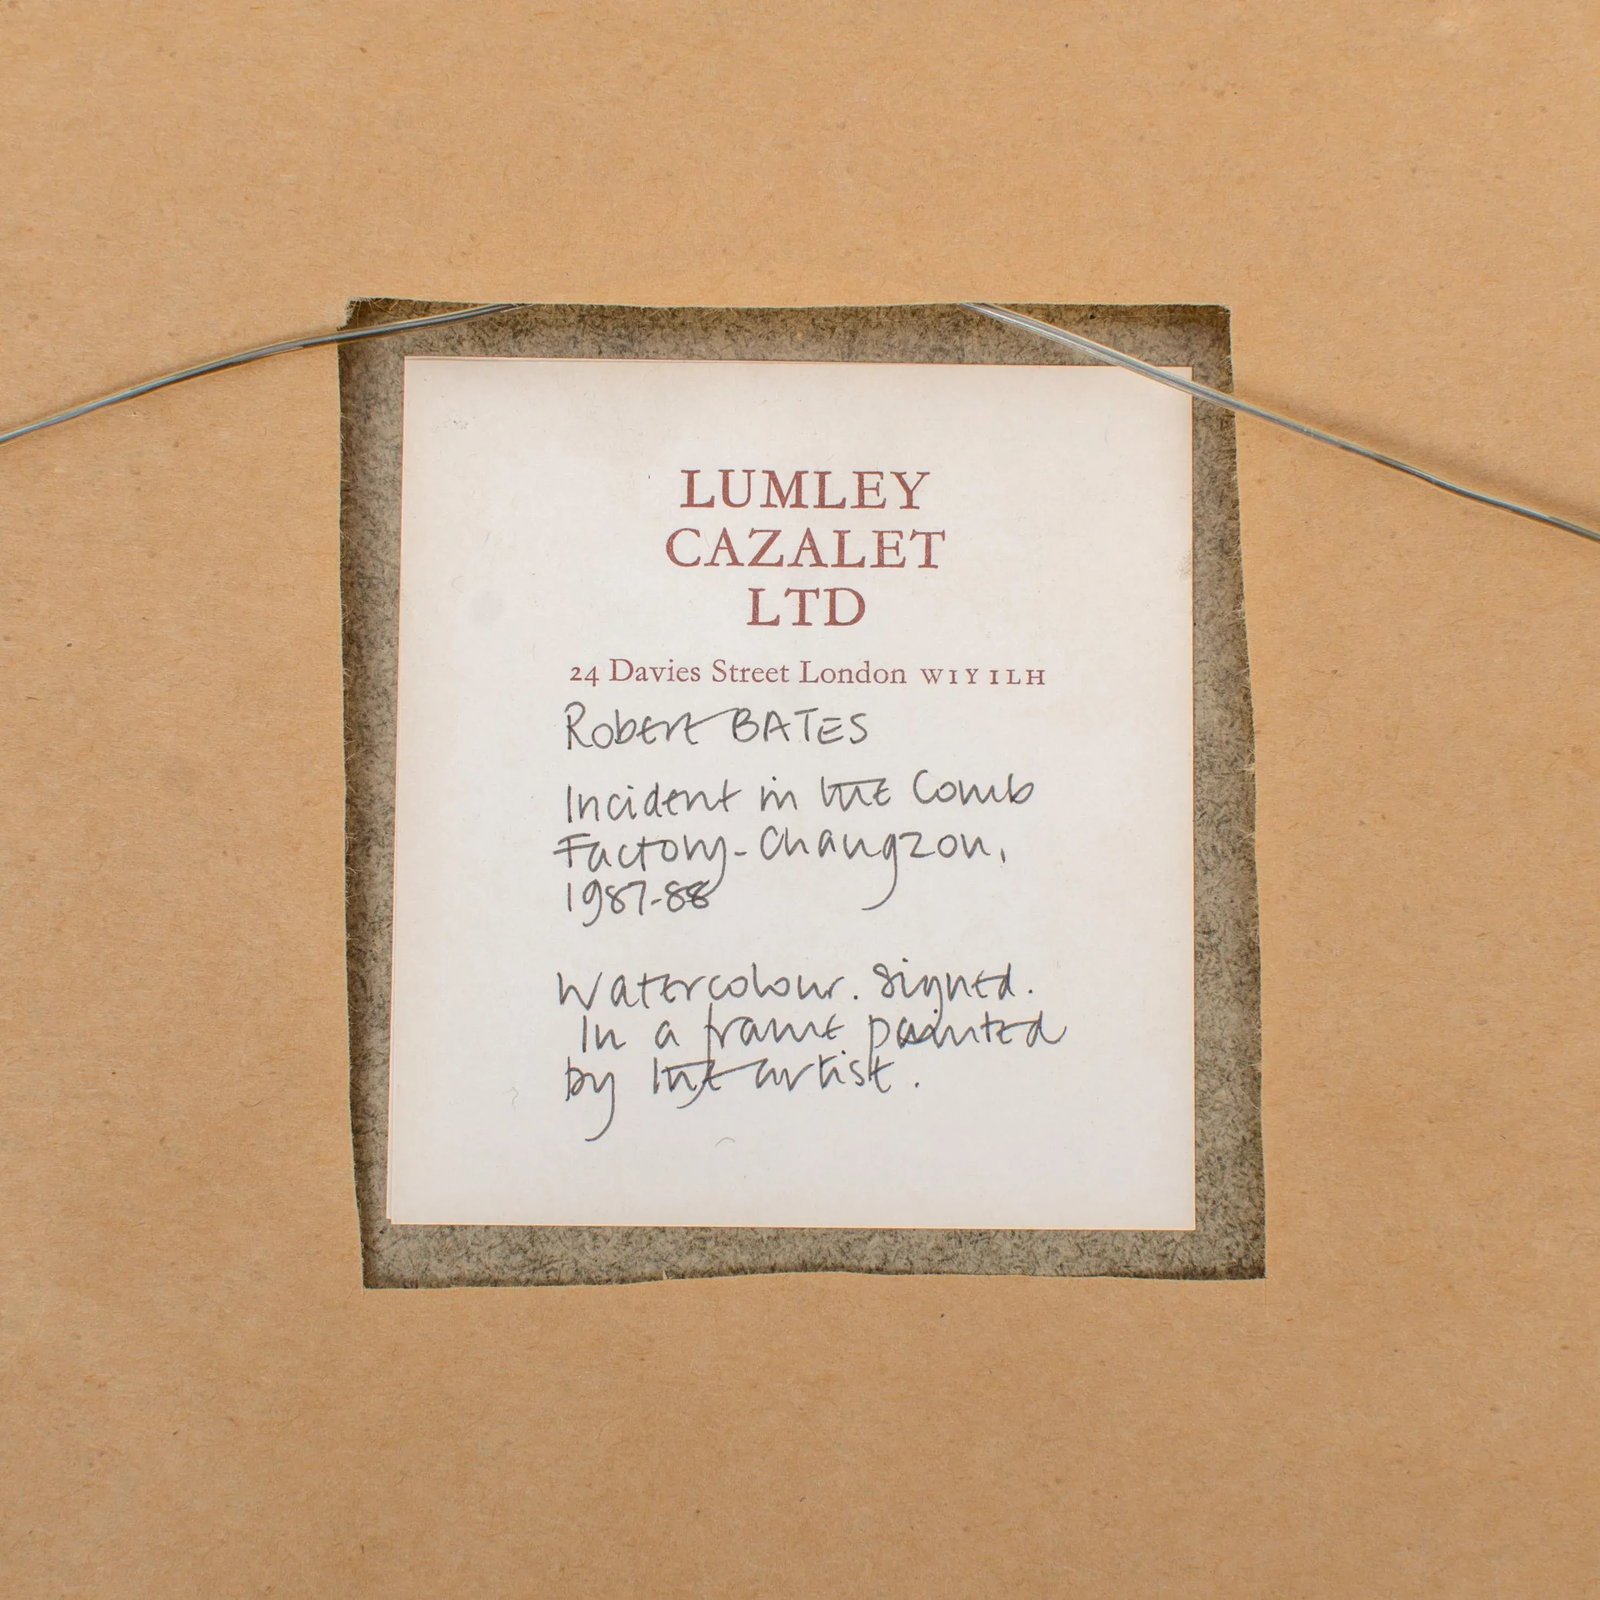 LUMLEY
CAZALET
LTD
24 Davies Street London W1Y 1LH
Robert BATES
Incident in the Comb
Factory - Changzon,
1987-88
Watercolour. Signed.
In a frame painted
by the artist.